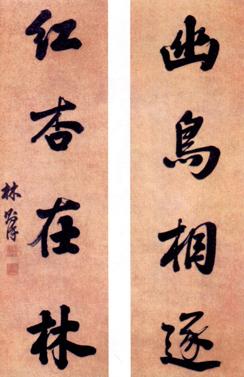 幽鳥相逐
紅杏在林
林則徐